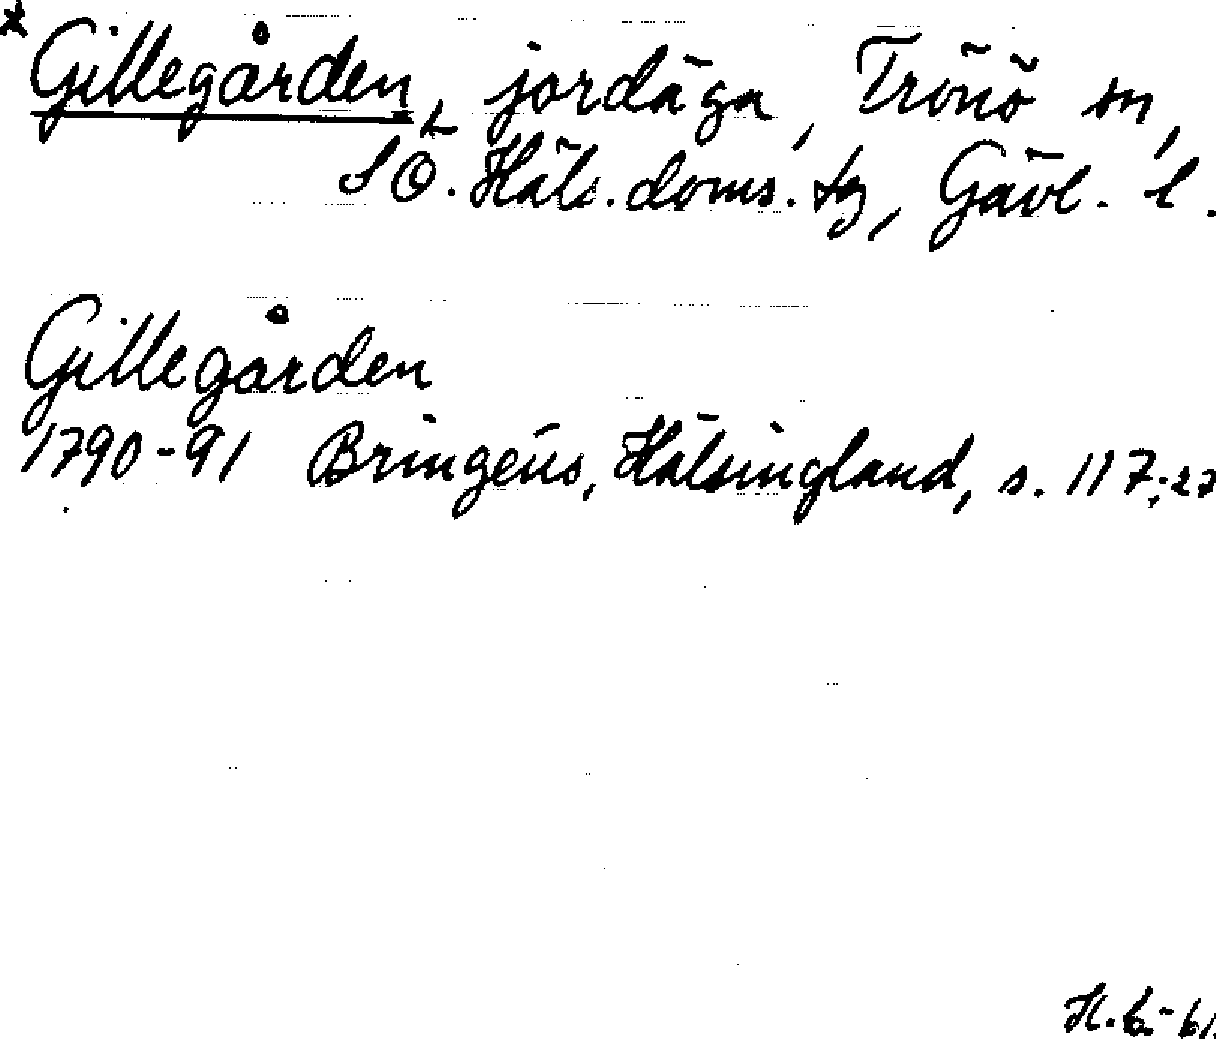 * Gillegården, jordäga, Trönö sn,
SÖ. Häls. doms. tg, Gävl. l.
Gillegården
1790-91 Bringéus, Hälsingland, s. 117; 27